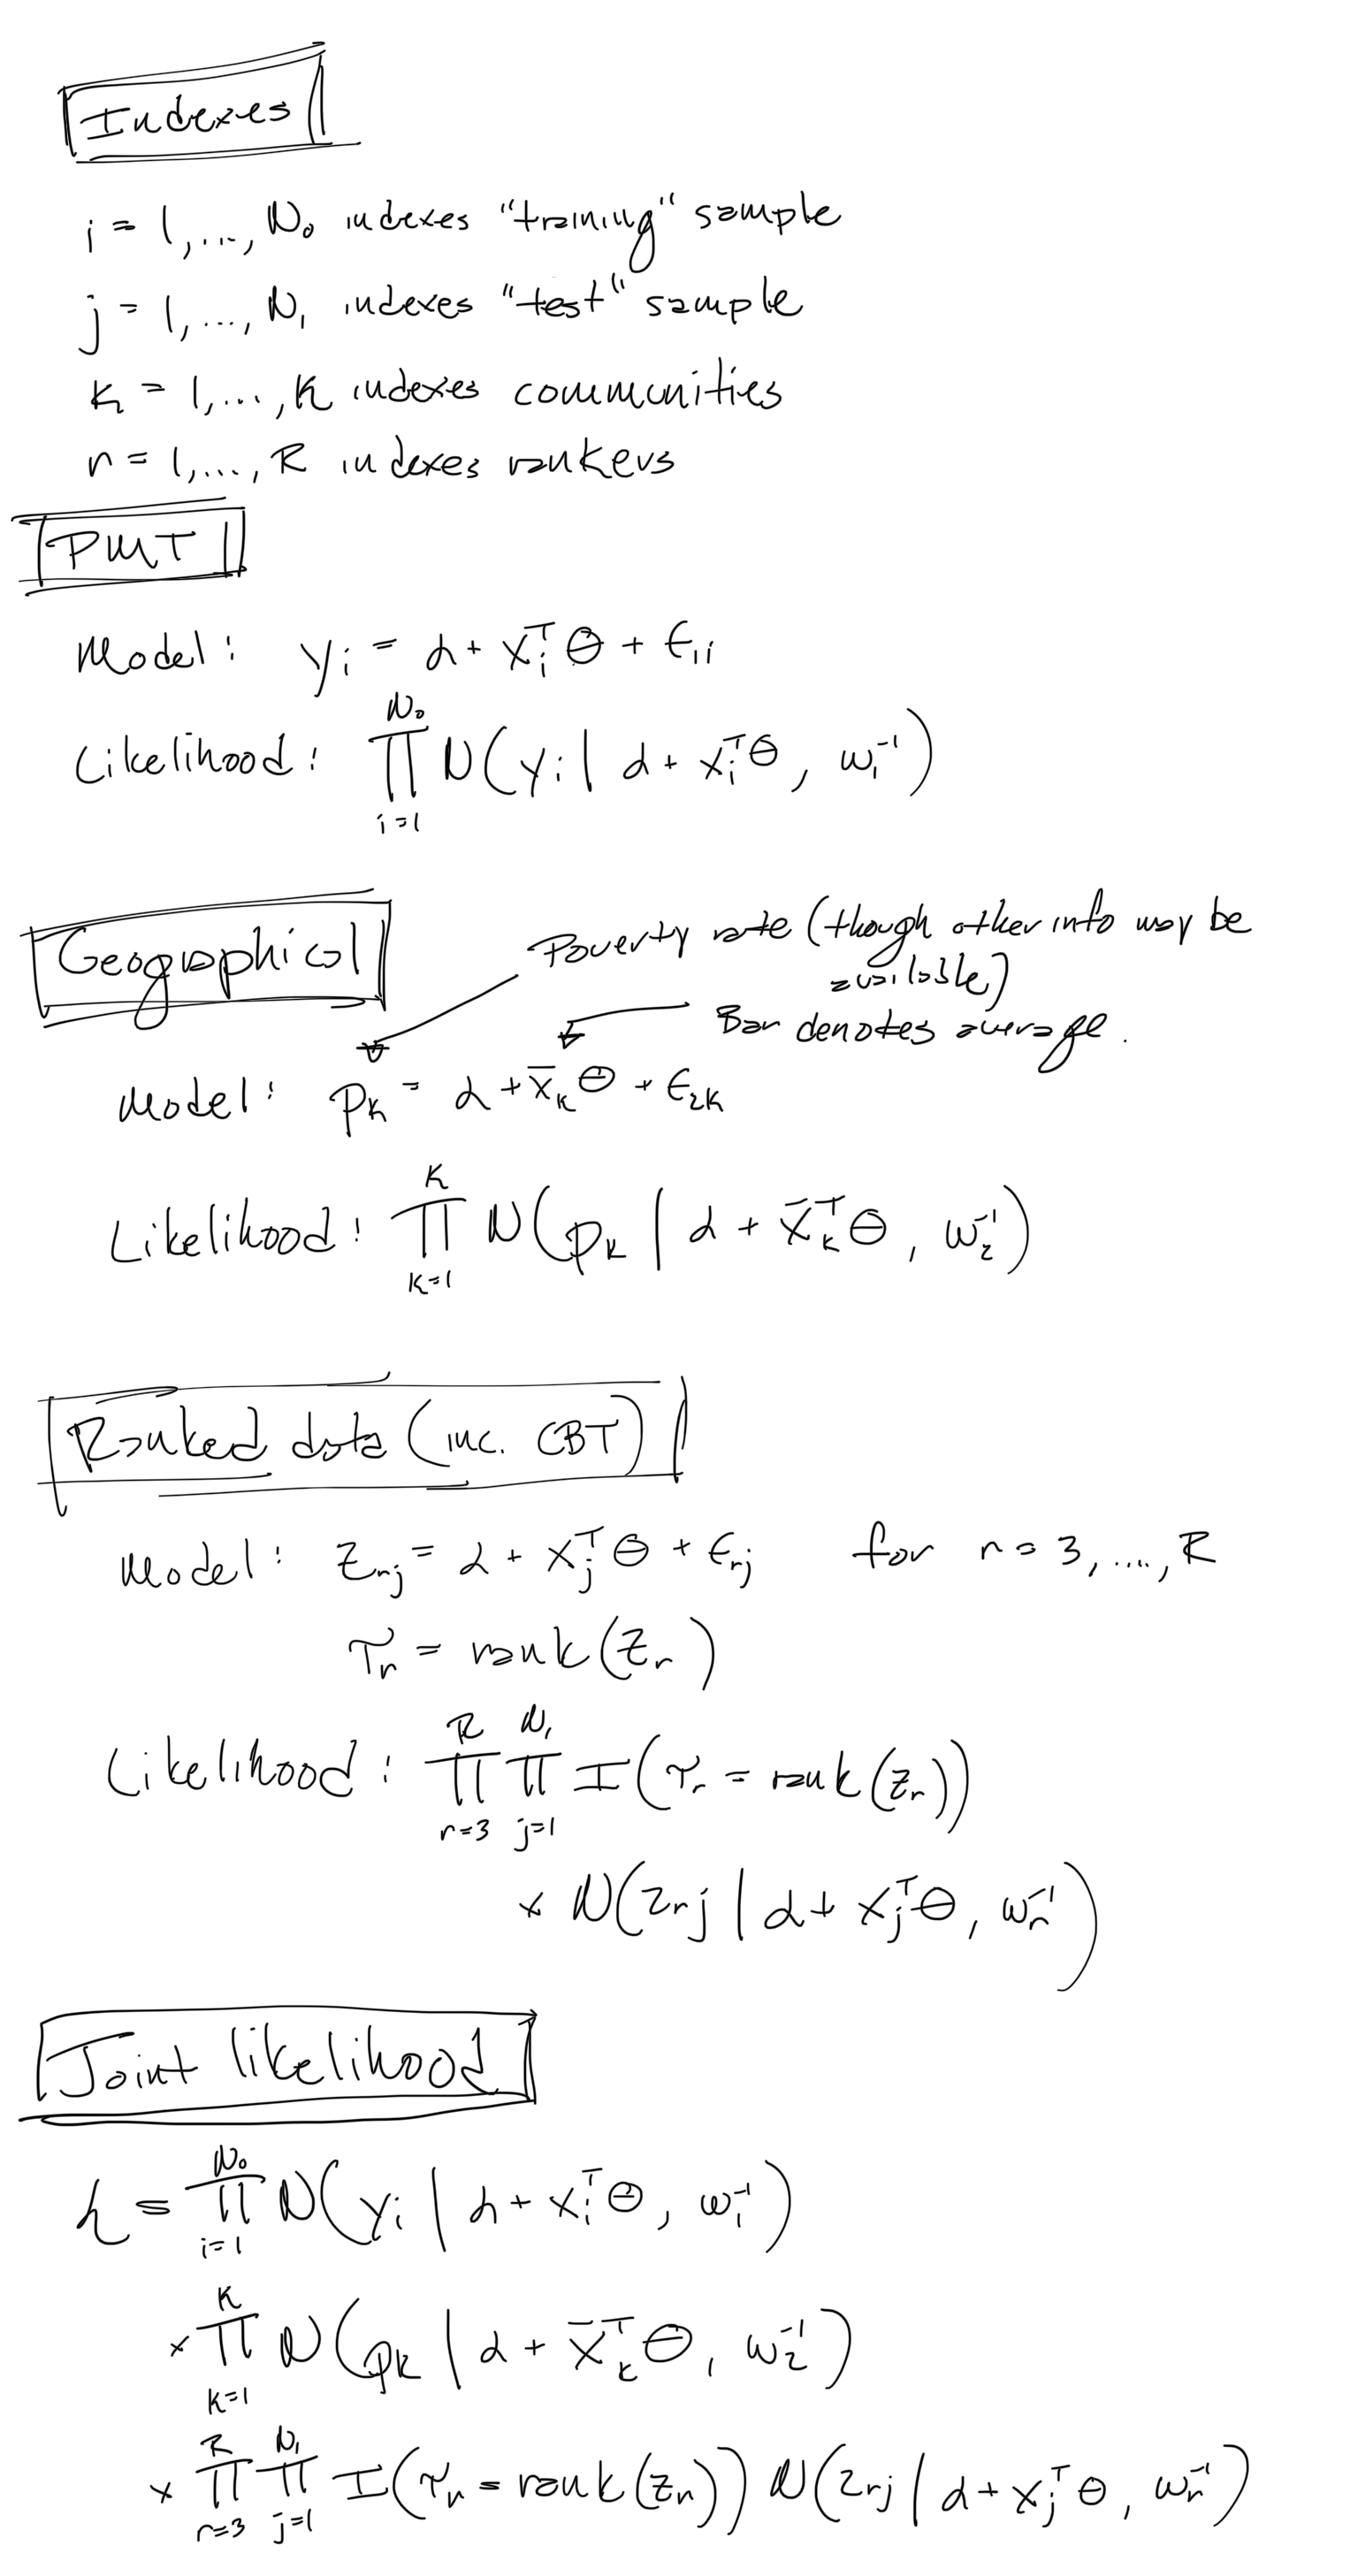 Indexes
i = 1,..., N₀ indexes "training" sample
j = 1,..., N₁ indexes "test" sample
k = 1,..., K indexes communities
r = 1,..., R indexes rankers
PMT
Model: yᵢ = α + xᵢᵀθ + ϵ₁ᵢ
Likelihood: ∏ᵢ₌₁^N₀ N(yᵢ | α + xᵢᵀθ, ω₁⁻¹)
Geographical
Poverty rate (though other info may be
available)
Bar denotes average.
Model: pₖ = α + x̄ₖθ + ϵ₂ₖ
Likelihood: ∏ₖ₌₁^K N(pₖ | α + x̄ₖᵀθ, ω₂⁻¹)
Ranked data (inc. CBT)
Model: z_rj = α + xⱼᵀθ + ϵ_rj for r = 3, ...., R
τᵣ = rank(zᵣ)
Likelihood: ∏ᵣ₌₃^R ∏ⱼ₌₁^N₁ I(τᵣ = rank(zᵣ))
× N(z_rj | α + xⱼᵀθ, ωᵣ⁻¹)
Joint likelihood
L = ∏ᵢ₌₁^N₀ N(yᵢ | α + xᵢᵀθ, ω₁⁻¹)
× ∏ₖ₌₁^K N(pₖ | α + x̄ₖᵀθ, ω₂⁻¹)
× ∏ᵣ₌₃^R ∏ⱼ₌₁^N₁ I(τᵣ = rank(zᵣ)) N(z_rj | α + xⱼᵀθ, ωᵣ⁻¹)